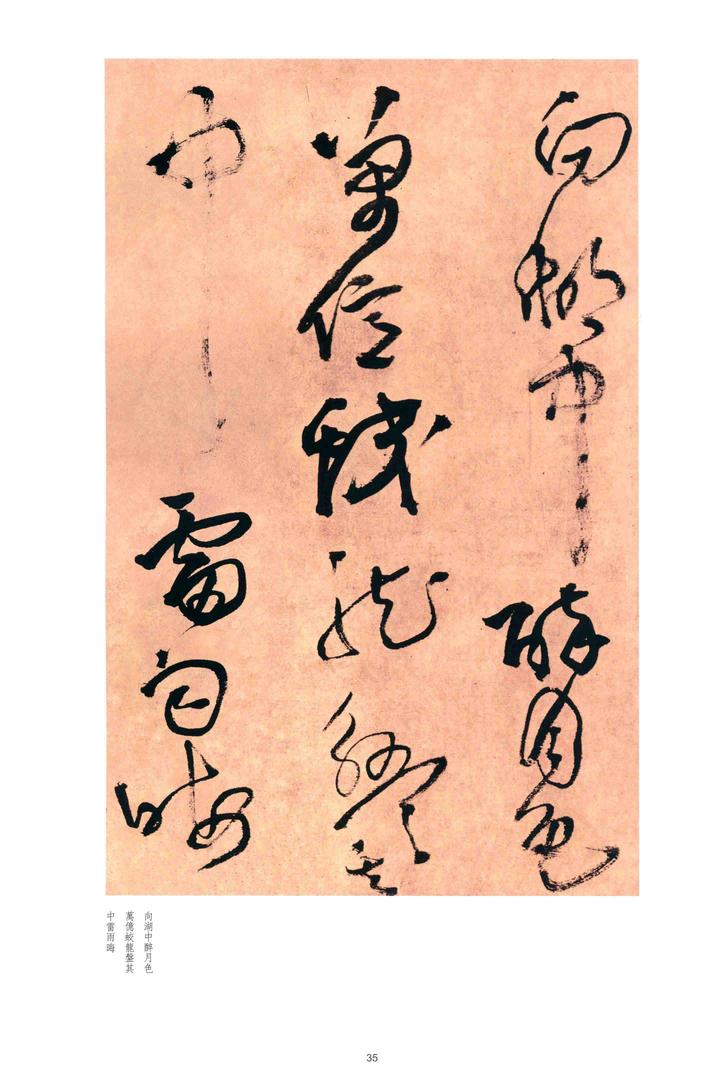 向湖中醉月色
萬億蛟龍盤其
中雷雨晦
向湖中醉月色
萬億蛟龍盤其
中雷雨晦
35